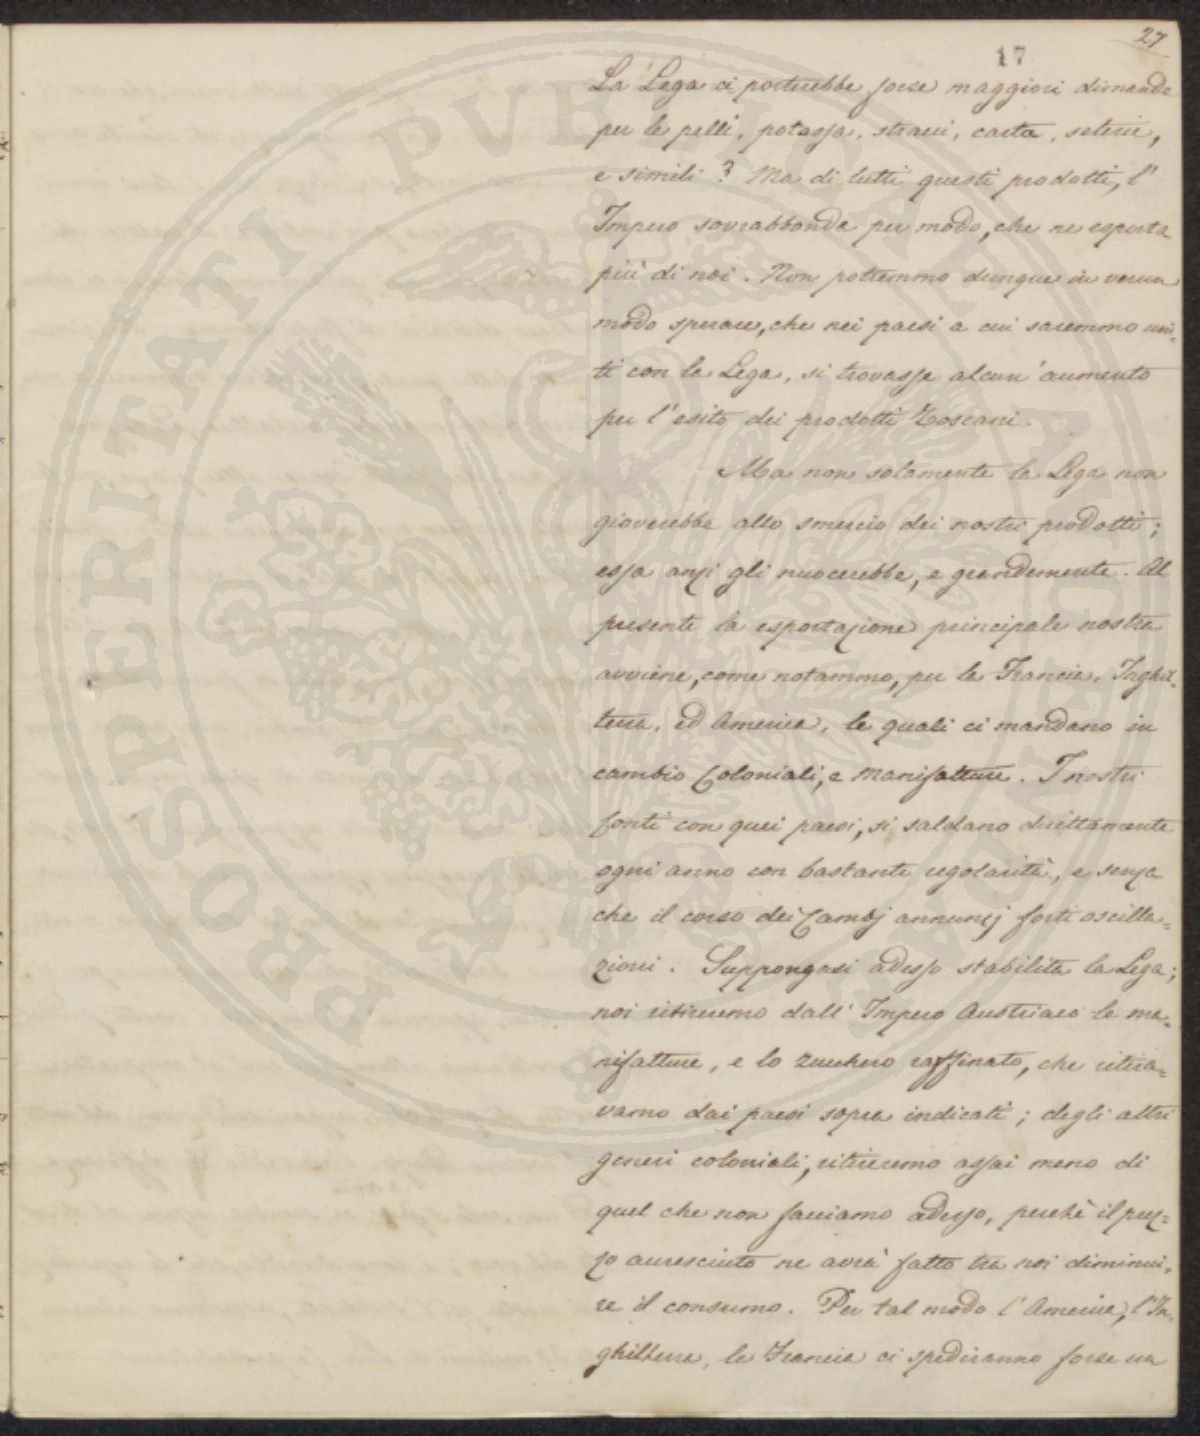 27
17
La Lega ci porterebbe forse maggiori dimande
per le pelli, potassa, stracci, carta, seterie,
e simili? Ma di tutti questi prodotti, l'
Impero sovrabbonda per modo, che ne esporta
più di noi. Non potremmo dunque in verun
modo sperare, che nei paesi a cui saremmo uni-
ti con la Lega, si trovasse alcun' aumento
per l'esito dei prodotti Toscani.
Ma non solamente la Lega non
gioverebbe allo smercio dei nostri prodotti;
essa anzi gli nuocerebbe, e grandemente. Al
presente la esportazione principale nostra
avviene, come notammo, per la Francia, Inghil-
terra, ed America, le quali ci mandano in
cambio Coloniali, e Manifatture. I nostri
Conti con quei paesi, si saldano direttamente
ogni anno con bastante regolarità, e senza
che il corso dei Cambj annunzj forti oscilla=
zioni. Suppongasi adesso stabilita la Lega;
noi ritireremo dall' Impero Austriaco le ma-
nifatture, e lo zucchero raffinato, che ritira=
vamo dai paesi sopra indicati; degli altri
generi coloniali, ritireremo assai meno di
quel che non facciamo adesso, perchè il prez=
zo accresciuto ne avrà fatto tra noi diminui-
re il consumo. Per tal modo l'America, l'In-
ghilterra, la Francia ci spediranno forse un
PROSPERITATI PVBLICAE AVGENDAE